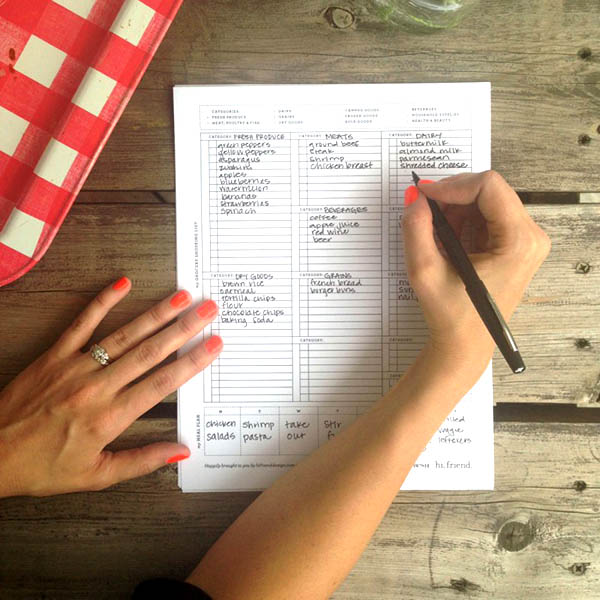 CATEGORIES:
• FRESH PRODUCE
• MEAT, POULTRY & FISH
• DAIRY
• GRAINS
• DRY GOODS
• CANNED GOODS
• FROZEN GOODS
• BEVERAGES
• HEALTH & BEAUTY
my GROCERY SHOPPING LIST
CATEGORY: FRESH PRODUCE
green peppers
yellow peppers
asparagus
zucchini
apples
blueberries
watermelon
bananas
strawberries
spinach
CATEGORY: MEATS
ground beef
steak
shrimp
chicken breast
CATEGORY: DAIRY
buttermilk
almond milk
parmesean
shredded cheese
CATEGORY: BEVERAGES
coffee
apple juice
red wine
beer
CATEGORY: DRY GOODS
brown rice
oatmeal
tortilla chips
flour
chocolate chips
baking soda
CATEGORY: GRAINS
french bread
burger buns
CATEGORY:
CATEGORY:
my MEAL PLAN
chicken
salads
shrimp
pasta
take
out
hi, friend.